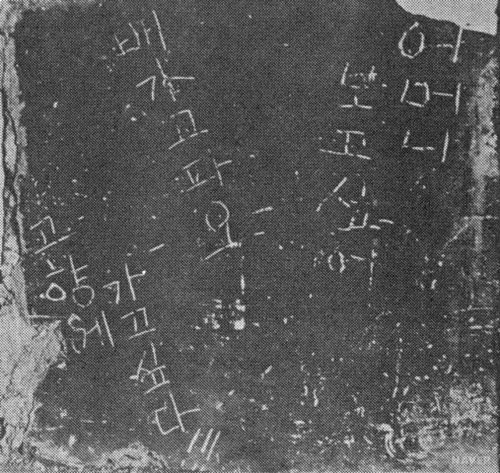 어머니
보고싶어
배가고파요
고향에
가고싶다
NAVER